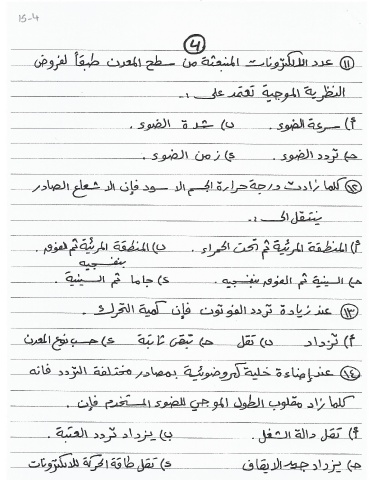 15-4
4
(11) عدد الالكترونات المنبعثة من سطح المعدن طبقاً لفروض
النظرية الموجية تعتمد على :.
أ) سرعة الضوء. ب) شدة الضوء.
ج) تردد الضوء. د) زمن الضوء.
(12) كلما زادت درجة حرارة الجسم الاسود فإن الاشعاع الصادر
ينتقل الى :.
أ) المنطقة المرئية ثم تحت الحمراء. ب) المنطقة المرئية ثم الفوق بنفسجيه
ج) السينية ثم الفوق بنفسجيه. د) جاما ثم السينية.
(13) عند زيادة تردد الفوتون فإن كمية التحرك.
أ) تزداد ب) تقل ج) تبقى ثابتة د) حسب نوع المعدن
(14) عند إضاءة خلية كهروضوئية بمصادر مختلفة التردد فانه
كلما زاد مقلوب الطول الموجي للضوء المستخدم فإن.
أ) تقل دالة الشغل. ب) يزداد تردد العتبة.
ج) يزداد جهد الايقاف د) تقل طاقة الحركة للالكترونات